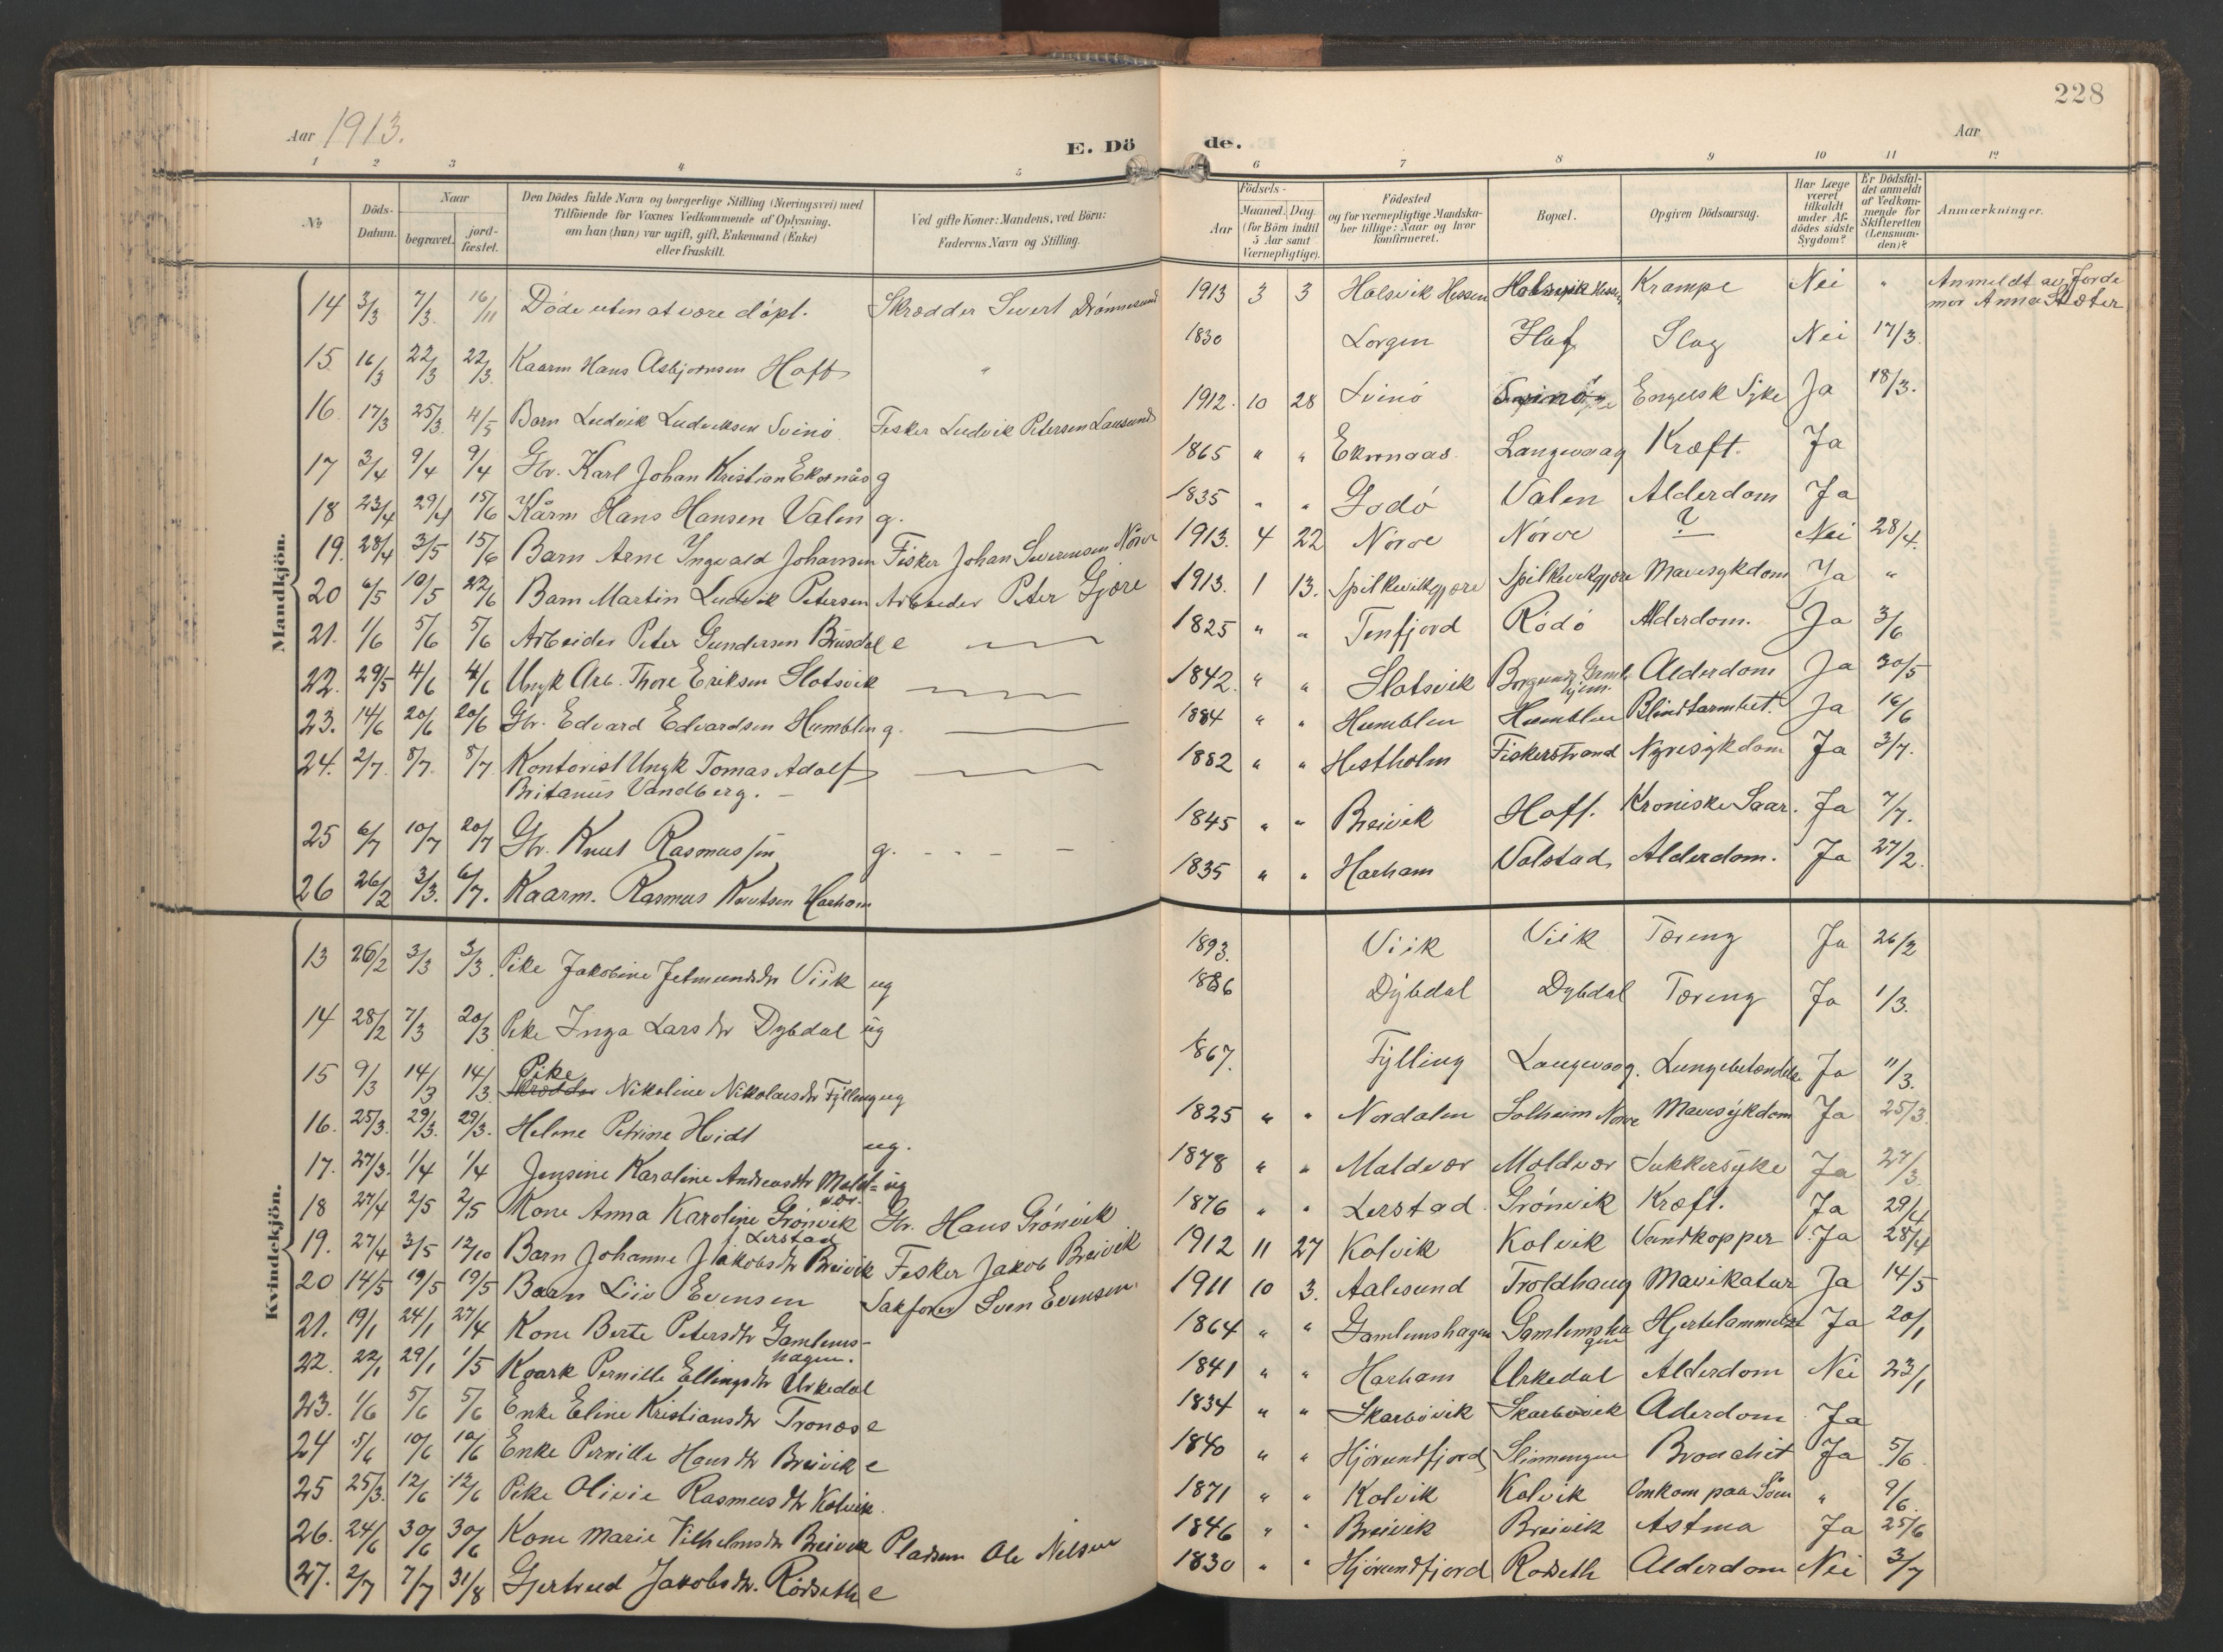 228
Aar 1913.
E. Döde.
Aar
1 2 3 4 5 6 7 8 9 10 11 12
№
Döds-Datum.
Naar
begravet.
jord-fæstet.
Den Dödes fulde Navn og borgerlige Stilling (Næringsvei) med
Tilföiende for Voxnes Vedkommende af Oplysning,
om han (hun) var ugift, gift, Enkemand (Enke)
eller fraskilt.
Ved gifte Koner: Mandens, ved Börn:
Faderens Navn og Stilling.
Födsels-
Aar
Maaned. Dag.
(for Börn indtil
5 Aar samt
Værnepligtige).
Födested
og for værnepligtige Mandska-
ber tillige: Naar og hvor
konfirmeret.
Bopæl.
Opgiven Dödsaarsag.
Har Læge
været
tilkaldt
under Af-
dödes sidste
Sygdom?
Er Dödsfal-
det anmeldt
af Vedkom-
mende for
Skifteretten
(Lensman-
den)?
Anmærkninger.
Mandkjön.
14 3/3 7/3. 16/11 Döde uten at være döpt. Skrædder Sivert 1913 3 3 Holsvik Hessen Krampe Nei " Anmeldt av Jorde
mor Anna Sæter
15 16/3 22/3 22/3. Kaarm Hans Asbjørnsen Hoff " 1830 Lorgen Hof Slag Nei 17/3.
16. 17/3 25/3. 4/5 Barn Ludvik Ludviksen Svinö. Fisker Ludvik Petersen 1912. 10 28 Svinö Svinö Engelsk Syke Ja 18/3.
17 3/4 9/4 9/4 Gbr. Karl Johan Kristian Ekornäs g 1865 " " Ekornaas Langevaag Kræft. Ja
18 23/4 29/4 15/6 Kårm Hans Hansen Valen g. 1835 " " Godö Valen Alderdom Ja
19. 28/4 3/5 15/6 Barn Arne Ingvald Johansen Fisker Johan Severinsen Nörve 1913. 4 22 Nörve Nörve ? Nei 28/4.
20 6/5 10/5 22/6 Barn Martin Ludvik Petersen Arbeider Peter Gjöre 1913. 1 13. Spilkevikgjöre Spilkevikgjöre Mavesykdom Ja "
21. 1/6 5/6 5/6 Arbeider Peter Gundersen Brusdal e 1825 " " Tenfjord Rödö Alderdom. Ja 3/6
22. 29/5 4/6 4/6 Ungk Arb. Thore Eriksen Slotsvik 1842. " " Slotsvik Borgunds Gamle
hjem. Alderdom Ja 30/5
23. 14/6 20/6 20/6 Gbr. Edvard Edvardsen Humblen g. 1884 " " Humblen Humblen Blindtarmbet. Ja 16/6
24. 2/7. 8/7. 8/7 Kontorist Ungk Tomas Adolf
Britanius Vandberg. 1882 " " Hestholm Fiskerstrand Nyresykdom Ja 3/7.
25 6/7 10/7 20/7 Gbr. Knut Rasmussen g. 1845 " " Breivik Hoff. Kroniske Saar. Ja 7/7.
26 26/2 3/3. 6/7. Kaarm. Rasmus Knutsen Harham 1835 " " Harham Valstad Alderdom. Ja 27/2.
Kvindekjön.
13 26/2 3/3 3/3. Pike Jakobine Jetmundsdtr Viik ug 1893. Viik Viik Tæring Ja 26/2
14 28/2 7/3 20/3 Pike Inga Larsdtr Dybdal ug 1886 Dybdal Dybdal Tæring Ja 1/3.
15 9/3 14/3 14/3 Pike
Skrædder Nikoline Nikolausdtr Fylling ug 1867. Fylling Langevaag. Lungebetændelse Ja 11/3.
16. 25/3. 29/3. 29/3. Helene Petrine Hvidt ug. 1825 " " Nordalen Solheim Nörve Mavesykdom Ja 25/3
17. 27/3. 1/4 1/4 Jensine Karoline Andreasdtr Mold=
vær. ug 1878 " " Moldvær Moldvær Sukkersyke Ja 27/3
18 27/4 2/5 2/5 Kone Anna Karoline Grönvik
f. Lerstad Gbr. Hans Grönvik 1876 " " Lerstad Grönvik Kræft. Ja 29/4
19. 27/4 3/5 12/10 Barn Johanne Jakobsdtr Breivik Fisker Jakob Breivik 1912 11 27 Kolvik Kolvik Vandkopper Ja 28/4
20 14/5 19/5 19/5 Barn Liiv Evensen Sakförer Sven Evensen 1911 10 3. Aalesund Troldhaug Mavekatar Ja 14/5
21. 19/1 24/1 27/4 Kone Berte Petersdtr Gamlems-
hagen. 1864 " " Gamlemshagen Gamlemsha
gen Hjertelammelse Ja 20/1
22. 22/1 29/1 1/5 Kaark Pernille Ellingsdtr Urkedal 1841 " " Harham Urkedal Alderdom Nei 23/1
23. 1/6 5/6 5/6 Enke Eline Kristiansdtr Tronæs e 1834 " " Skarbövik Skarbövik Aderdom Ja
24 5/6 10/6 10/6 Enke Pernille Hansdtr Breivik e 1840 " " Hjörundfjord Slinningen Bronchit Ja 5/6
25 25/3. 12/6 12/6 Pike Olivie Rasmusdtr Kolvik. 1871 " " Kolvik Kolvik Omkom paa Sjöen " 9/6.
26. 24/6 30/6 30/6 Kone Marie Vilhelmsdtr Breivik Pladsm Ole Nilsen 1846 " " Breivik Breivik Astma Ja 25/6
27. 2/7 7/7 31/8 Gjertrud Jakobsdtr. Rödseth e 1830 " " Hjörundfjord Rödseth Alderdom Nei 3/7